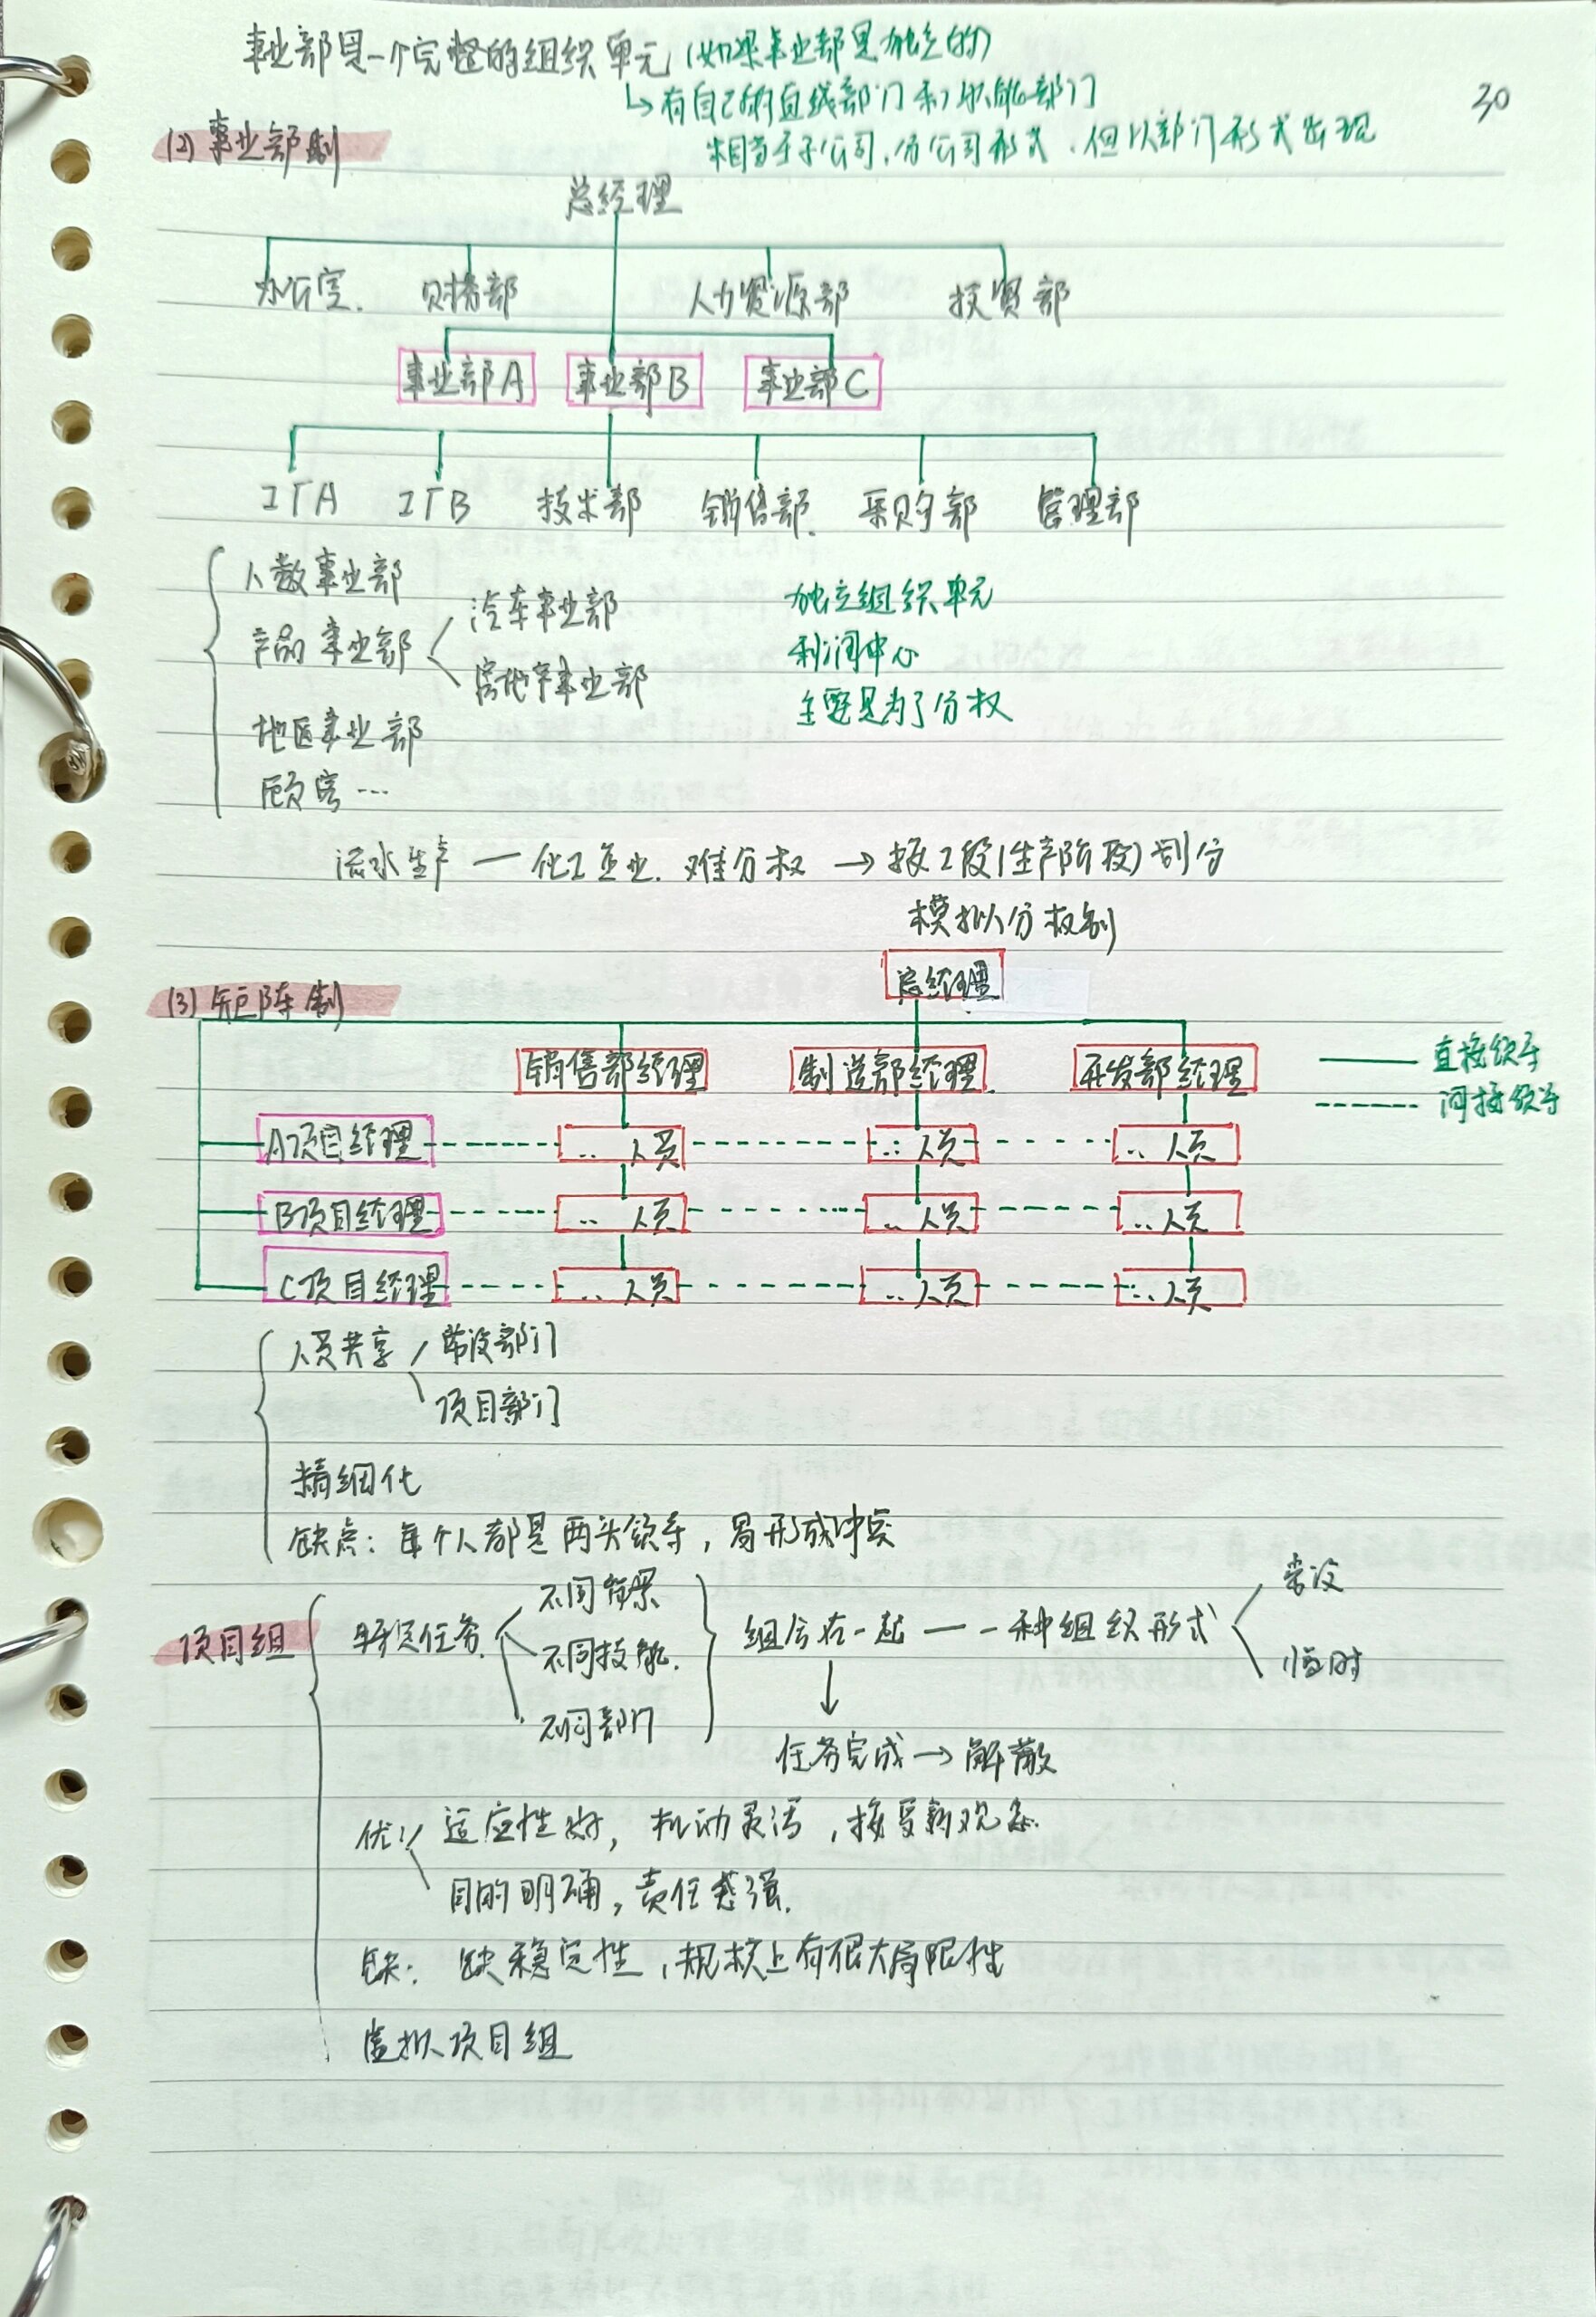 事业部是一个完整的组织单元 (如果事业部是独立的)
↳ 有自己的直线部门和职能部门
30
相当于子公司,分公司形式,但以部门形式出现
(2) 事业部制
总经理
办公室. 财务部 人力资源部 投资部
事业部A 事业部B 事业部C
工厂A 工厂B 技术部 销售部. 采购部 管理部
人数事业部
产品事业部
汽车事业部
房地产事业部
地区事业部
顾客…
独立组织单元
利润中心
主要是为了分权
流水生产 — 化工企业. 难分权 → 按工段(生产阶段)划分
模拟分权制
(3) 矩阵制
总经理
销售部经理 制造部经理. 开发部经理
直接领导
间接领导
A项目经理 .. 人员 .. 人员 .. 人员
B项目经理 .. 人员 .. 人员 .. 人员
C项目经理 .. 人员 .. 人员 .. 人员
人员共享
常设部门
项目部门
精细化
缺点: 每个人都是两头领导, 易形成冲突
项目组
特定任务.
不同背景
不同技能.
不同部门
组合在一起 — 一种组织形式
常设
临时
↓
任务完成 → 解散
优: 适应性好, 机动灵活, 接受新观念.
目的明确, 责任感强.
缺: 缺稳定性, 规模上有很大局限性
虚拟项目组